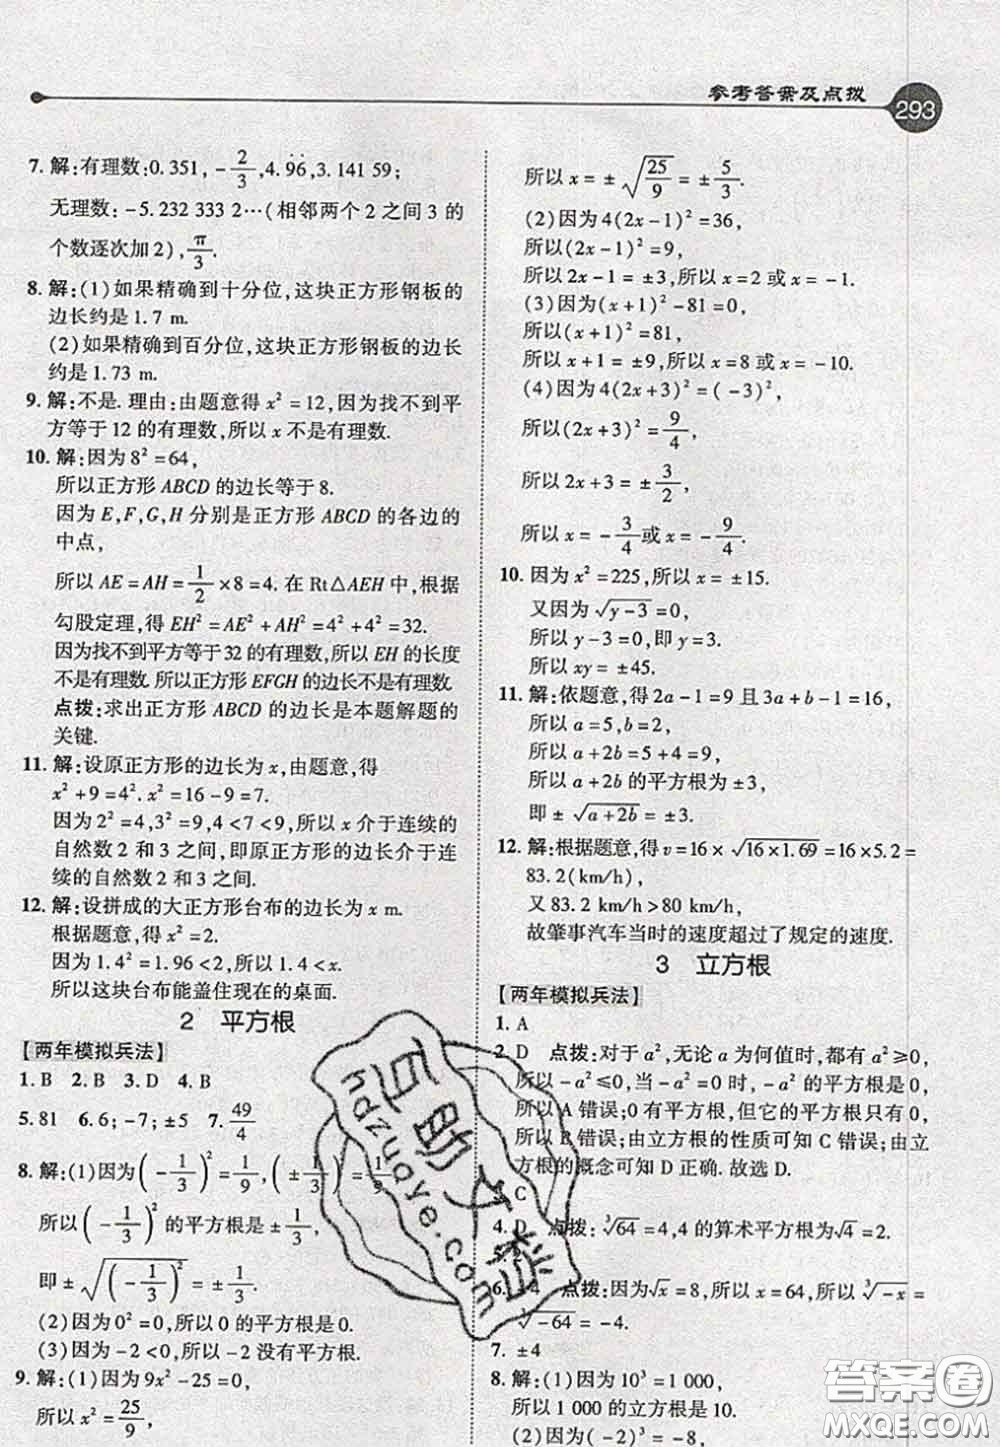 参考答案及点拨
293
7. 解:有理数:0.351, -2/3, 4.9̇6̇, 3.141 59;
无理数: -5.232 333 2…(相邻两个 2 之间 3 的
个数逐次加 2), π/3.
8. 解:(1)如果精确到十分位,这块正方形钢板的
边长约是 1.7 m.
(2)如果精确到百分位,这块正方形钢板的边长
约是 1.73 m.
9. 解:不是. 理由:由题意得 x² = 12, 因为找不到平
方等于 12 的有理数,所以 x 不是有理数.
10. 解:因为 8² = 64,
所以正方形 ABCD 的边长等于 8.
因为 E,F,G,H 分别是正方形 ABCD 的各边的
中点,
所以 AE = AH = 1/2 × 8 = 4. 在 Rt△AEH 中,根据
勾股定理,得 EH² = AE² + AH² = 4² + 4² = 32.
因为找不到平方等于 32 的有理数,所以 EH 的长度
不是有理数. 所以正方形 EFGH 的边长不是有理数.
点拨:求出正方形 ABCD 的边长是本题解题的
关键.
11. 解:设原正方形的边长为 x,由题意,得
x² + 9 = 4². x² = 16 - 9 = 7.
因为 2² = 4, 3² = 9, 4 < 7 < 9, 所以 x 介于连续的
自然数 2 和 3 之间,即原正方形的边长介于连
续的自然数 2 和 3 之间.
12. 解:设拼成的大正方形台布的边长为 x m.
根据题意,得 x² = 2.
因为 1.4² = 1.96 < 2, 所以 1.4 < x.
所以这块台布能盖住现在的桌面.
2 平方根
【两年模拟兵法】
1. B 2. B 3. D 4. B
5. 81 6. 6; -7; ±5 7. 49/4
8. 解:(1)因为(-1/3)² = 1/9, (±1/3)² = 1/9,
所以(-1/3)² 的平方根是 ±1/3,
即 ±√((-1/3)²) = ±1/3.
(2)因为 0² = 0, 所以 0 的平方根是 0.
(3)因为 -2 < 0, 所以 -2 没有平方根.
9. 解:(1)因为 9x² - 25 = 0,
所以 x² = 25/9,
所以 x = ±√(25/9) = ±5/3.
(2)因为 4(2x - 1)² = 36,
所以 (2x - 1)² = 9,
所以 2x - 1 = ±3, 所以 x = 2 或 x = -1.
(3)因为 (x + 1)² - 81 = 0,
所以 (x + 1)² = 81,
所以 x + 1 = ±9, 所以 x = 8 或 x = -10.
(4)因为 4(2x + 3)² = (-3)²,
所以 (2x + 3)² = 9/4,
所以 2x + 3 = ±3/2,
所以 x = -3/4 或 x = -9/4.
10. 因为 x² = 225, 所以 x = ±15.
又因为 √(y - 3) = 0,
所以 y - 3 = 0, 即 y = 3.
所以 xy = ±45.
11. 解:依题意,得 2a - 1 = 9 且 3a + b - 1 = 16,
所以 a = 5, b = 2,
所以 a + 2b = 5 + 4 = 9,
所以 a + 2b 的平方根为 ±3,
即 ±√(a + 2b) = ±3.
12. 解:根据题意,得 v = 16 × √(16 × 1.69) = 16 × 5.2 =
83.2(km/h),
又 83.2 km/h > 80 km/h,
故肇事汽车当时的速度超过了规定的速度.
3 立方根
【两年模拟兵法】
1. A
2. D 点拨:对于 a², 无论 a 为何值时,都有 a² ≥ 0,
所以 -a² ≤ 0, 当 a = 0 时, -a² = 0 有平方根,
所以 A 错误;0 有平方根,但它的平方根只有 0,
所以 B 错误;由立方根的性质可知 C 错误;由立
方根的概念可知 D 正确. 故选 D.
C
4. D 点拨:∛64 = 4, 4 的算术平方根为 √4 = 2.
5. 2
6. -4 点拨:因为 √x = 8, 所以 x = 64, 所以 ∛(-x) =
∛(-64) = -4.
7. ±4
8. 解:(1)因为 10³ = 1 000,
所以 1 000 的立方根是 10.
(2)因为 (-2)³ = -8,
百助文秘
hdzuoye.com
答案圈
MXQE.COM